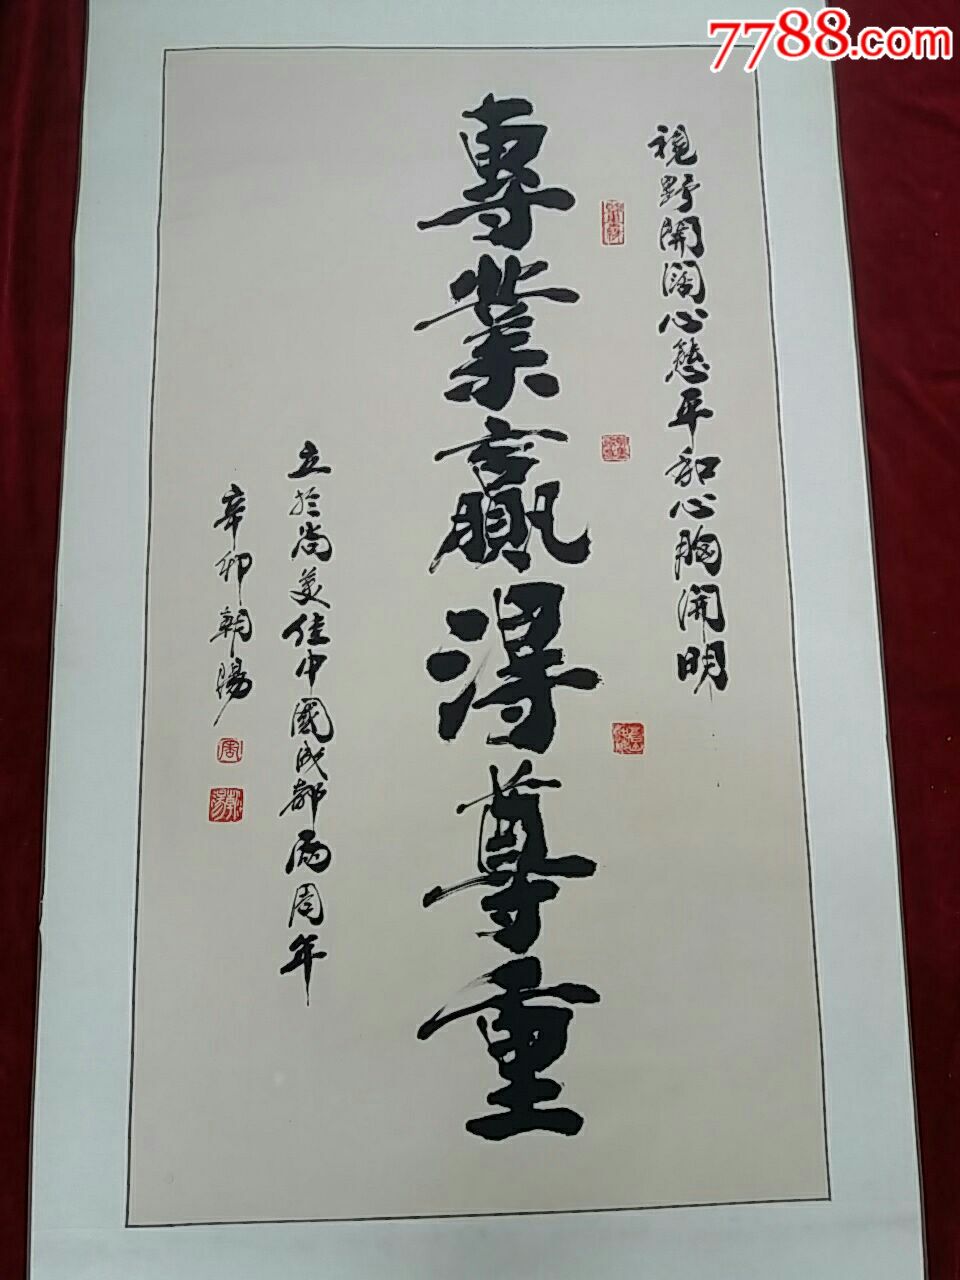 7788.com
視野開闊心態平和心胸開明
專業贏得尊重
立於尚美佳中國成都兩周年
辛卯朝陽
周